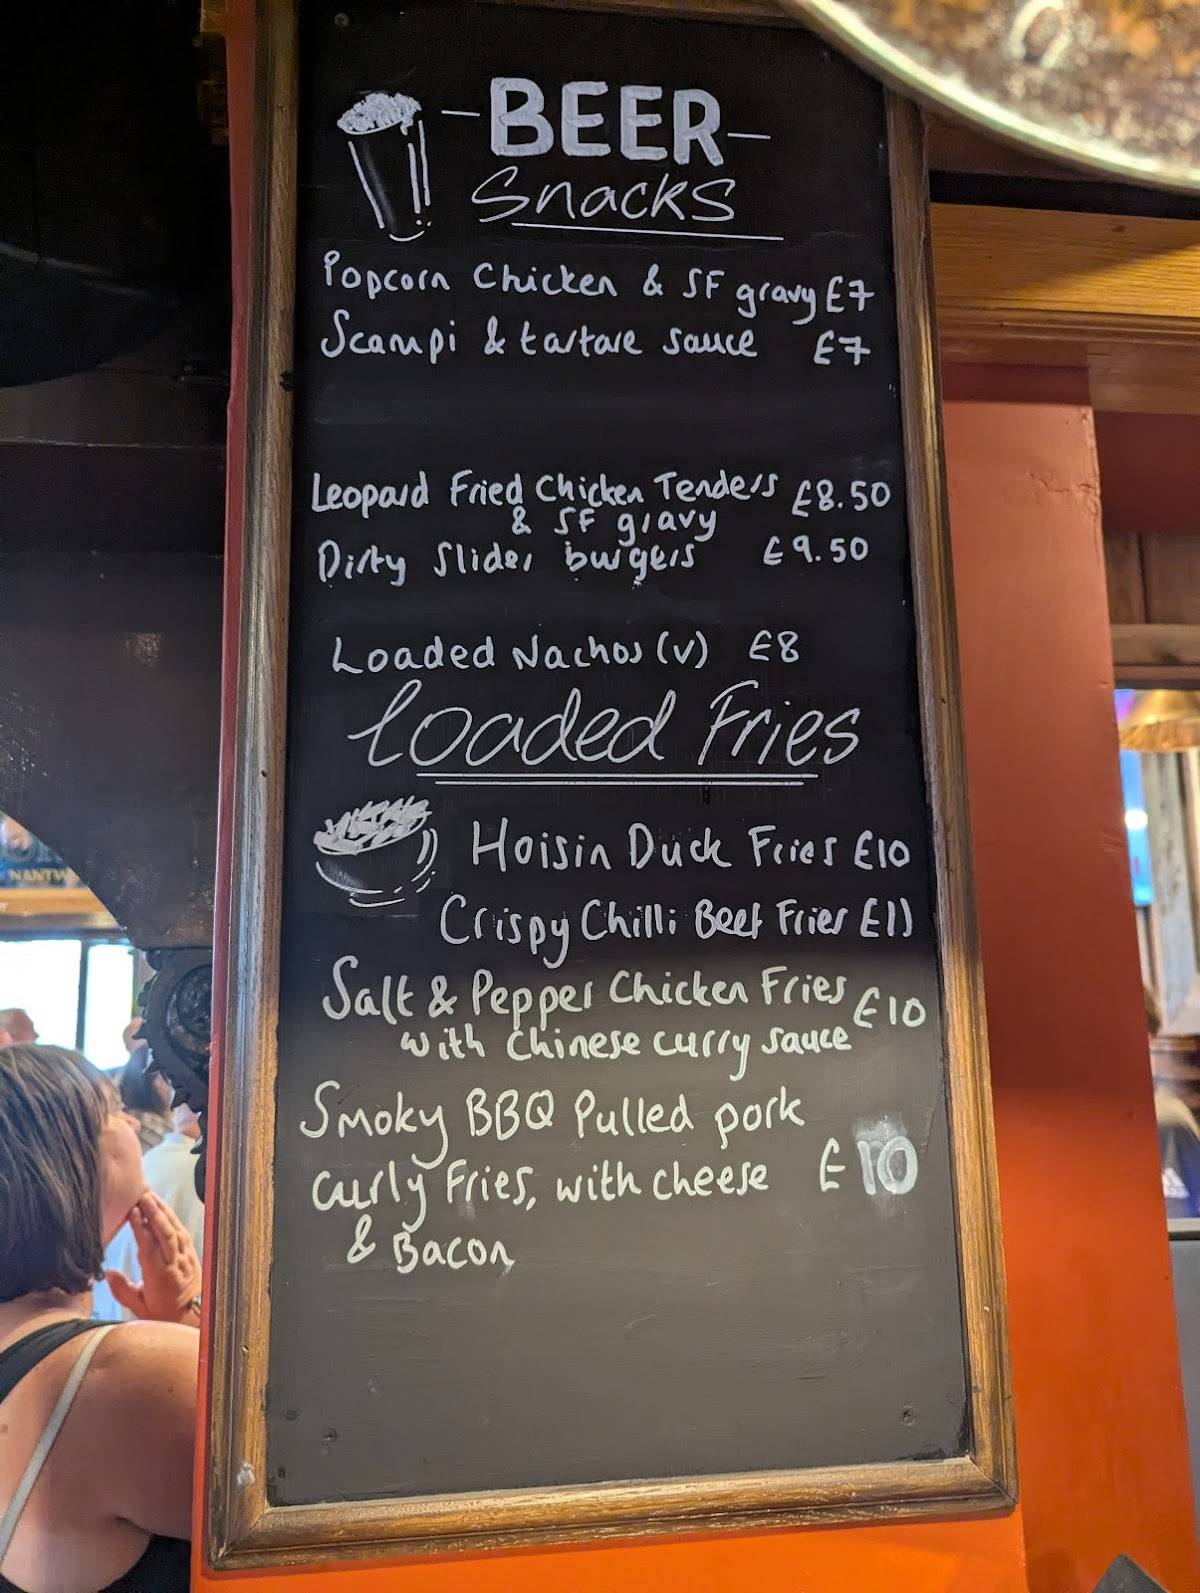 -BEER-
Snacks
Popcorn Chicken & SF gravy £7
Scampi & tartare sauce £7
Leopard Fried Chicken Tenders £8.50
& SF gravy
Dirty Slider burgers £9.50
Loaded Nachos (v) £8
Loaded Fries
Hoisin Duck Fries £10
Crispy Chilli Beef Fries £11
Salt & Pepper Chicken Fries £10
with Chinese curry sauce
Smoky BBQ Pulled pork
curly Fries, with cheese £10
& Bacon